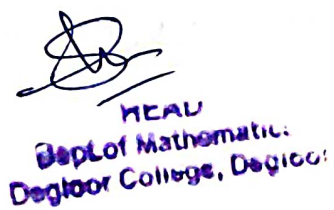 HEAD
Dept.of Mathematic.
Degloor College, Degloor